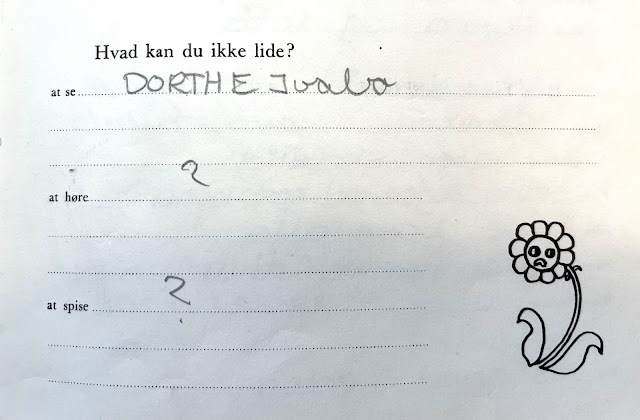 Hvad kan du ikke lide?
at se DORTHE Ivalo
at høre ?
at spise ?